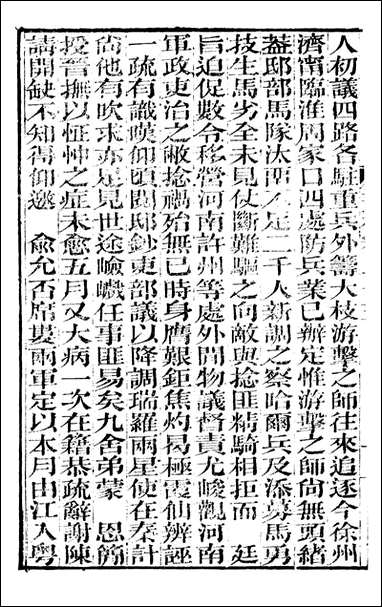 人初議四路各駐重兵外籌大枝游擊之師往來追逐今徐州
濟甯臨淮周家口四處防兵業已辦定惟游擊之師尚無頭緒
葢邸部馬隊汰而不足二千人新調之察哈爾兵及添募馬勇
技生馬劣全未見仗斷難驅之向敵與捻匪精騎相拒而　廷
旨迫促數令移營河南許州等處外間物議督責尤峻觀河南
軍政吏治之敝捻禍殆無已時身膺艱鉅焦灼曷極霞仙辨誣
一疏有識嘆仰頃閱邸鈔吏部議以降調瑞羅兩星使在秦計
尚他有吹求亦足見世途嶮巇任事匪易矣九舍弟蒙　恩簡
授晉撫以怔忡之症未愈五月又大病一次在籍恭疏辭謝陳
請開缺不知得仰邀　俞允否席婁兩軍定以本月由江入粵